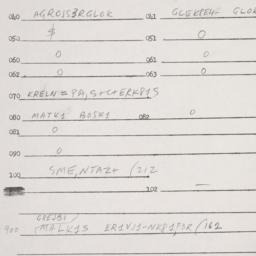 040 AGROJSBRGLOK 041 GLEKPEH- GLOK
050 $ 051 0
060 0 061 0
062 0 063 0
070 KRELN=PA,S+C+ERK81S
080 MATK1 BOSK1 082 0
081 0
090 0
100 SME,NTAZ+ /212
102 —
900 /MALK1S ER1VJ1-NK81,PDR/162